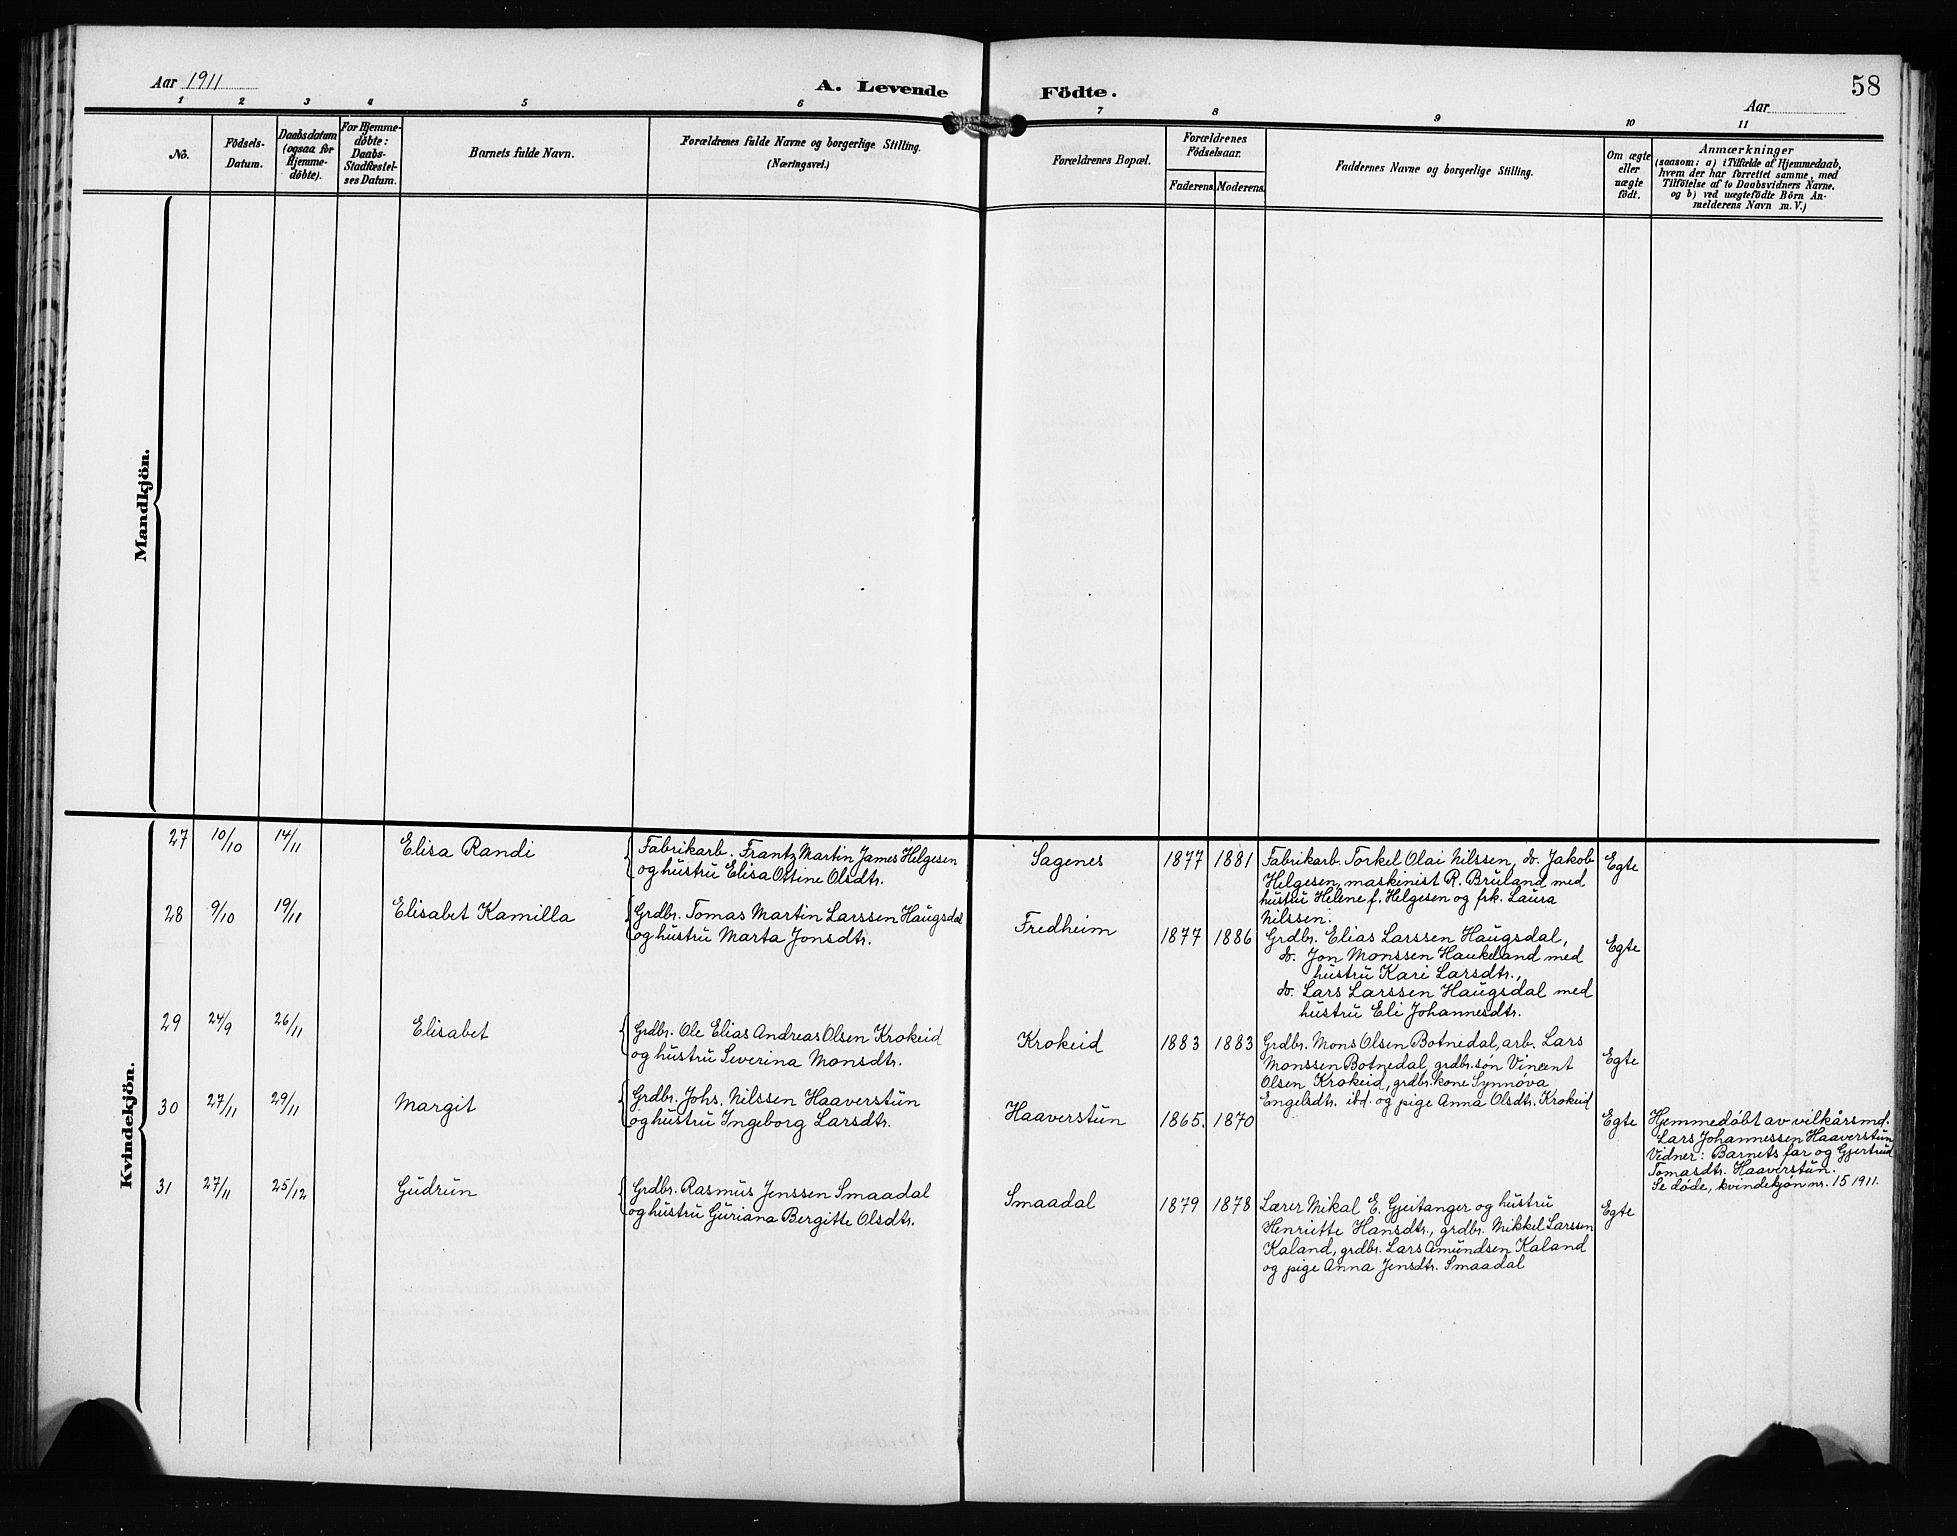 Aar 1911
A. Levende Födte.
58
Aar
1 2 3 4 5 6 7 8 9 10 11
No.
Födsels-Datum.
Daabsdatum (ogsaa for Hjemme-döbte).
For Hjemme-döbte: Daabs-Stadfæstel-ses Datum.
Barnets fulde Navn.
Forældrenes fulde Navne og borgerlige Stilling.
(Næringsvei.)
Forældrenes Bopæl.
Forældrenes Födselsaar.
Faderens. Moderens.
Faddernes Navne og borgerlige Stilling.
Om ægte eller uægte födt.
Anmærkninger
(saasom: a) i Tilfælde af Hjemmedaab,
hvem der har forrettet samme, med
Tilföielse af to Daabsvidners Navne,
og b) ved uægtefödte Börn An-
melderens Navn m. V.)
Mandkjön.
Kvindekjön.
27 10/10 14/11 Elisa Randi
Fabrikarb. Frantz Martin James Helgesen
og hustru Elisa Ottine Olsdtr.
Sagenes 1877 1881
Fabrikarb. Torkel Olai Nilssen, do. Jakob
Helgesen, maskinist R. Bruland med
hustru Helene f. Helgesen og frk. Laura
Nilssen.
Egte
28 9/10 19/11 Elisabet Kamilla
Grdbr. Tomas Martin Larssen Haugsdal
og hustru Marta Jonsdtr.
Fredheim 1877 1886
Grdbr. Elias Larssen Haugsdal,
do. Jon Monssen Haukeland med
hustru Kari Larsdtr.,
do. Lars Larssen Haugsdal med
hustru Eli Johannesdtr.
Egte
29 24/9 26/11 Elisabet
Grdbr. Ole Elias Andreas Olsen Krokeid
og hustru Severina Monsdtr.
Krokeid 1883 1883
Grdbr. Mons Olsen Botnedal, arb. Lars
Monssen Botnedal, grdbr.søn Vincent
Olsen Krokeid, grdbr.kone Synnøva
Engelsdtr. ibd. og pige Anna Olsdtr. Krokeid
Egte
30 27/11 29/11 Margit
Grdbr. Johs. Nilssen Haaverstun
og hustru Ingeborg Larsdtr.
Haaverstun 1865. 1870
Egte
Hjemmedøbt av vilkårsmd.
Lars Johannessen Haaverstun
Vidner: Barnets far og Gjertrud
Tomasdtr. Haaverstun.
Se døde, kvindekjøn nr. 15 1911.
31 27/11 25/12 Gudrun
Grdbr. Rasmus Jenssen Smaadal
og hustru Guriana Bergitte Olsdtr.
Smaadal 1879 1878
Lærer Mikal E. Gjeitanger og hustru
Henriette Hansdtr., grdbr. Mikkel Larssen
Kaland, grdbr. Lars Amundsen Kaland
og pige Anna Jensdtr. Smaadal
Egte